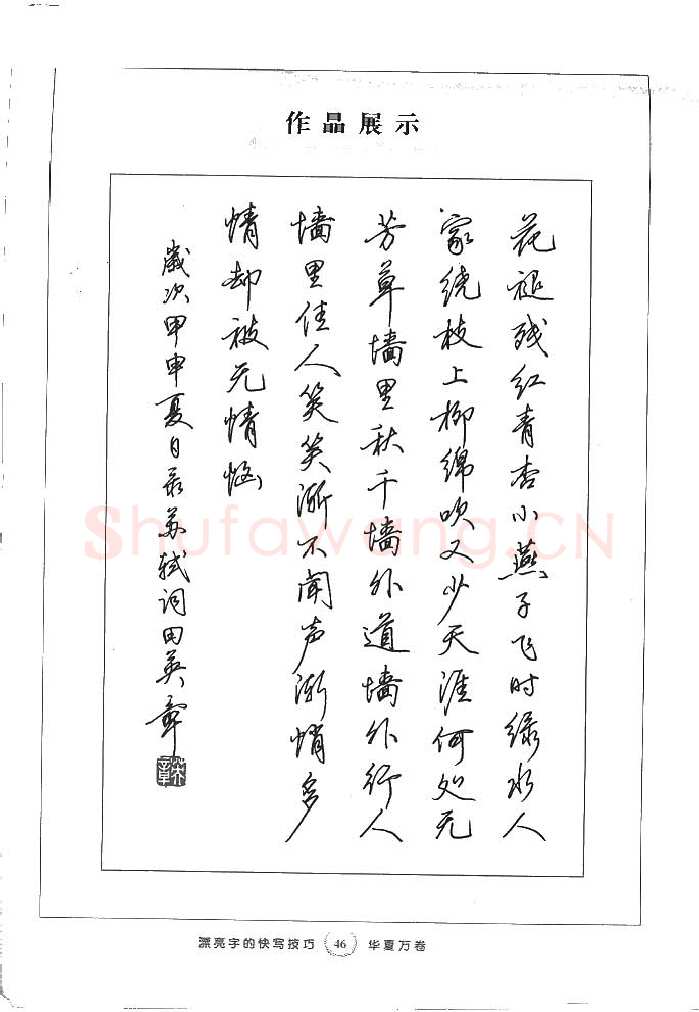 作品展示
花褪残红青杏小燕子飞时绿水人
家绕枝上柳绵吹又少天涯何处无
芳草墙里秋千墙外道墙外行人
墙里佳人笑笑渐不闻声渐悄多
情却被无情恼
歲次甲申夏日录苏轼词田英章
英章
ShufaWang.CN
漂亮字的快写技巧 46 华夏万卷